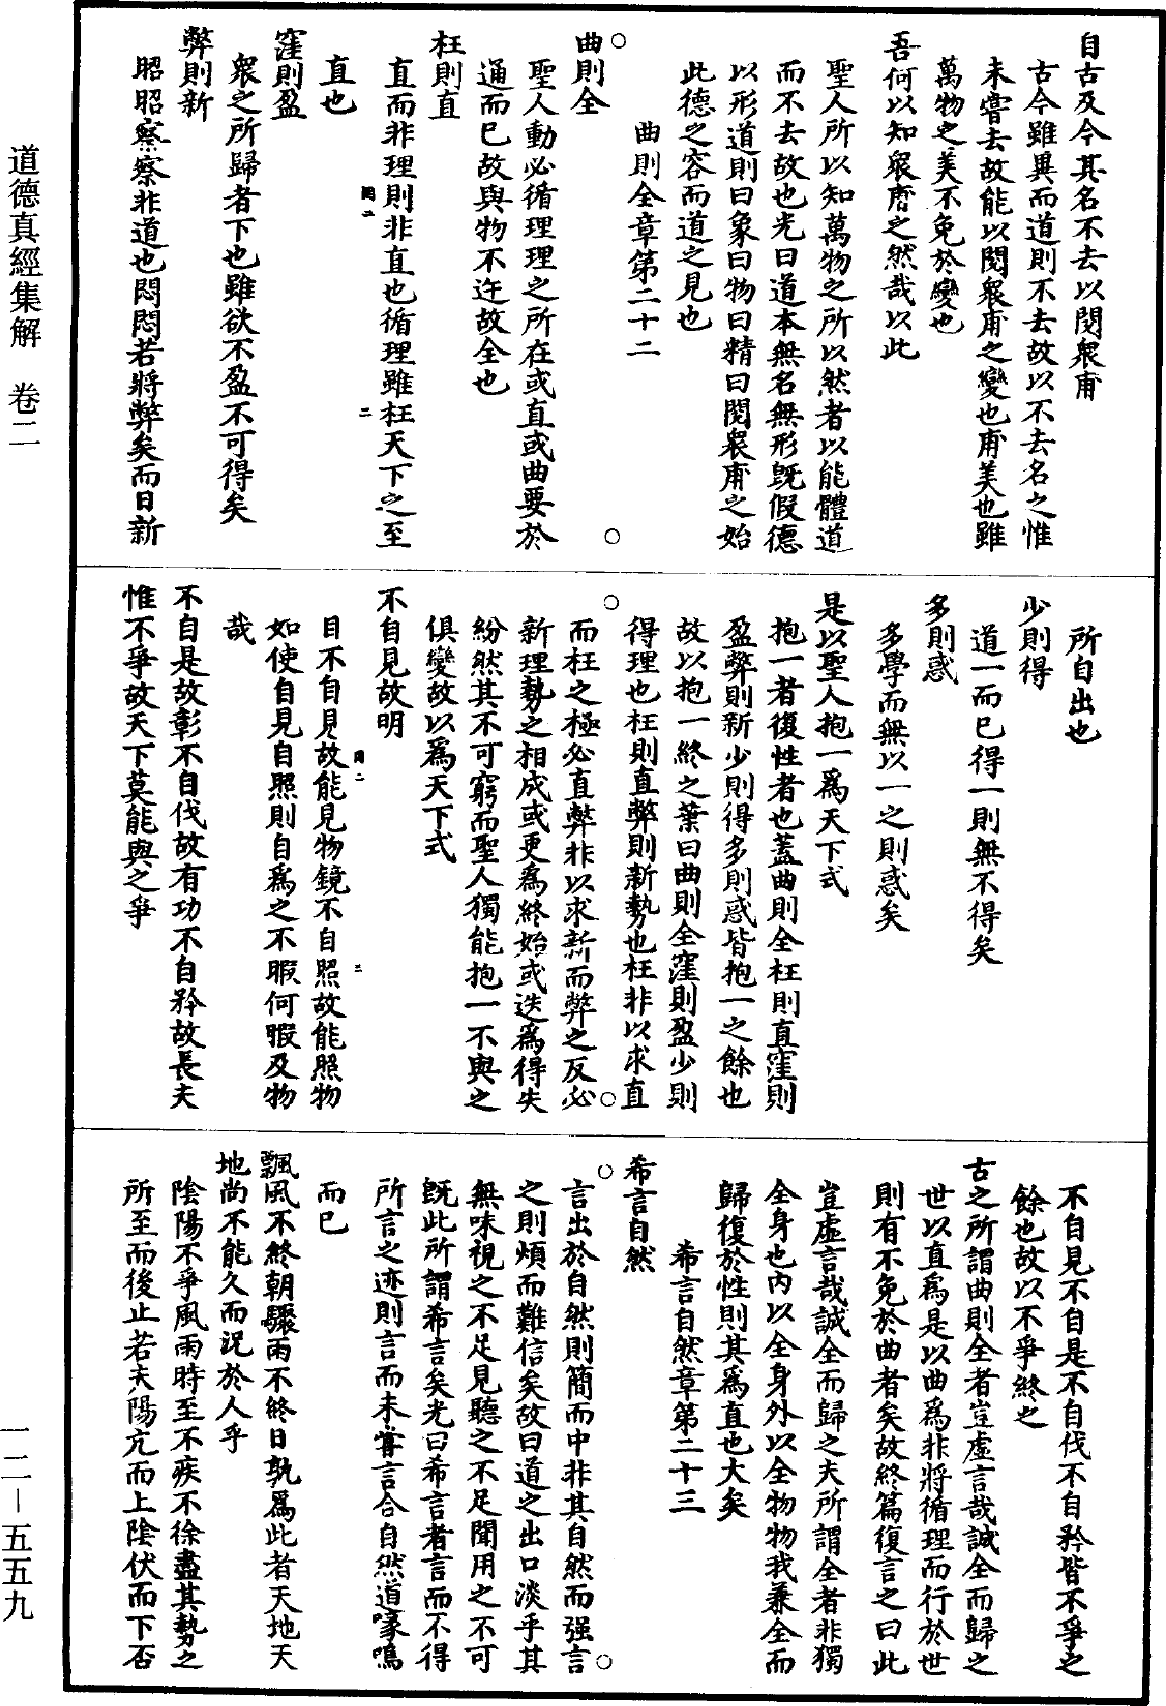 自古及今其名不去以閱衆甫
古今雖異而道則不去故以不去名之惟
未嘗去故能以閱衆甫之變也甫美也雖
萬物之美不免於變也
吾何以知衆甫之然哉以此
聖人所以知萬物之所以然者以能體道
而不去故也光曰道本無名無形旣假德
以形道則曰象曰物曰精曰閱衆甫之始
此德之容而道之見也
曲則全章第二十二
曲則全
聖人動必循理理之所在或直或曲要於
通而已故與物不迕故全也
枉則直
直而非理則非直也循理雖枉天下之至
直也
窪則盈
衆之所歸者下也雖欲不盈不可得矣
弊則新
昭昭察察非道也悶悶若將弊矣而日新
所自出也
少則得
道一而已得一則無不得矣
多則惑
多學而無以一之則惑矣
是以聖人抱一爲天下式
抱一者復性者也蓋曲則全枉則直窪則
盈弊則新少則得多則惑皆抱一之餘也
故以抱一終之葉曰曲則全窪則盈少則
得理也枉則直弊則新勢也枉非以求直
而枉之極必直弊非以求新而弊之反必
新理勢之相成或更爲終始或迭爲得失
紛然其不可窮而聖人獨能抱一不與之
俱變故以爲天下式
不自見故明
目不自見故能見物鏡不自照故能照物
如使自見自照則自爲之不暇何暇及物
哉
不自是故彰不自伐故有功不自矜故長夫
惟不爭故天下莫能與之爭
不自見不自是不自伐不自矜皆不爭之
餘也故以不爭終之
古之所謂曲則全者豈虛言哉誠全而歸之
世以直爲是以曲爲非將循理而行於世
則有不免於曲者矣故終篇復言之曰此
豈虛言哉誠全而歸之夫所謂全者非獨
全身也內以全身外以全物物我兼全而
歸復於性則其爲直也大矣
希言自然章第二十三
希言自然
言出於自然則簡而中非其自然而强言
之則煩而難信矣故曰道之出口淡乎其
無味視之不足見聽之不足聞用之不可
旣此所謂希言矣光曰希言者言而不得
所言之迹則言而未嘗言合自然道喙鳴
而已
飄風不終朝驟雨不終日孰爲此者天地天
地尚不能久而況於人乎
陰陽不爭風雨時至不疾不徐盡其勢之
所至而後止若夫陽亢而上陰伏而下否
道德真經集解 卷二
一二—五五九